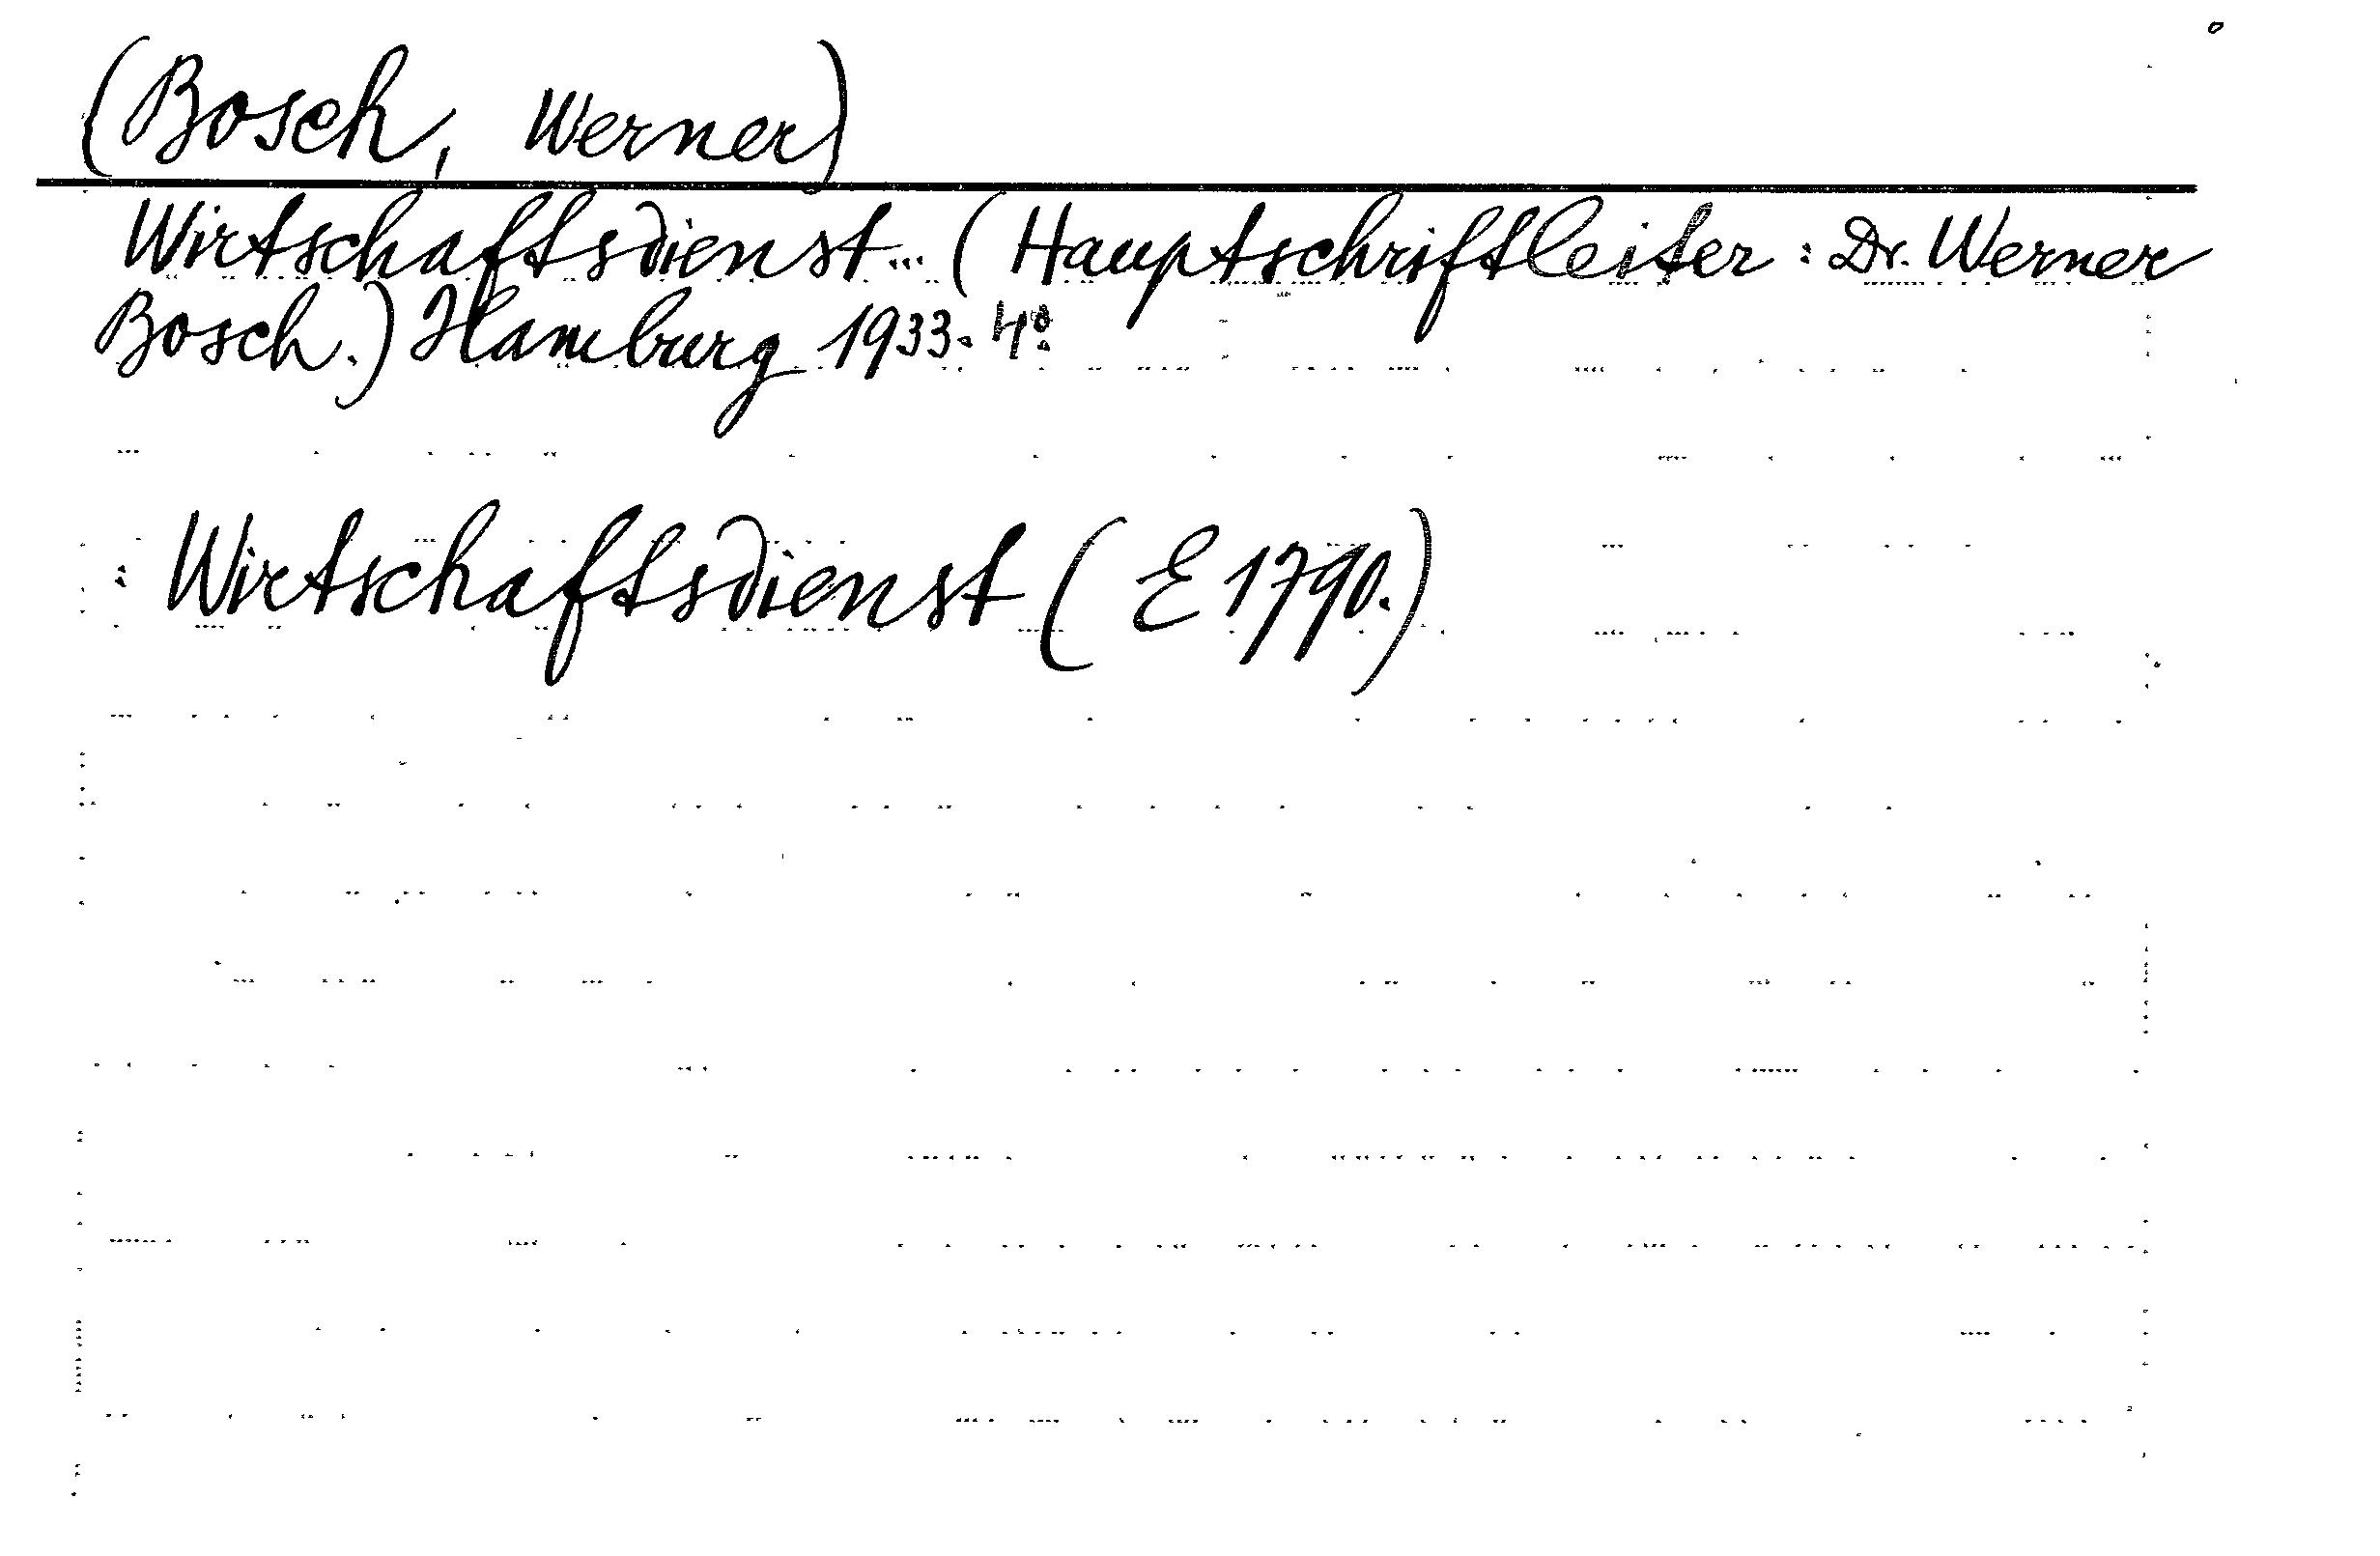 (Bosch, Werner)
Wirtschaftsdienst... (Hauptschriftleiter: Dr. Werner
Bosch.) Hamburg 1933. 4°.
: Wirtschaftsdienst (E 1790.)